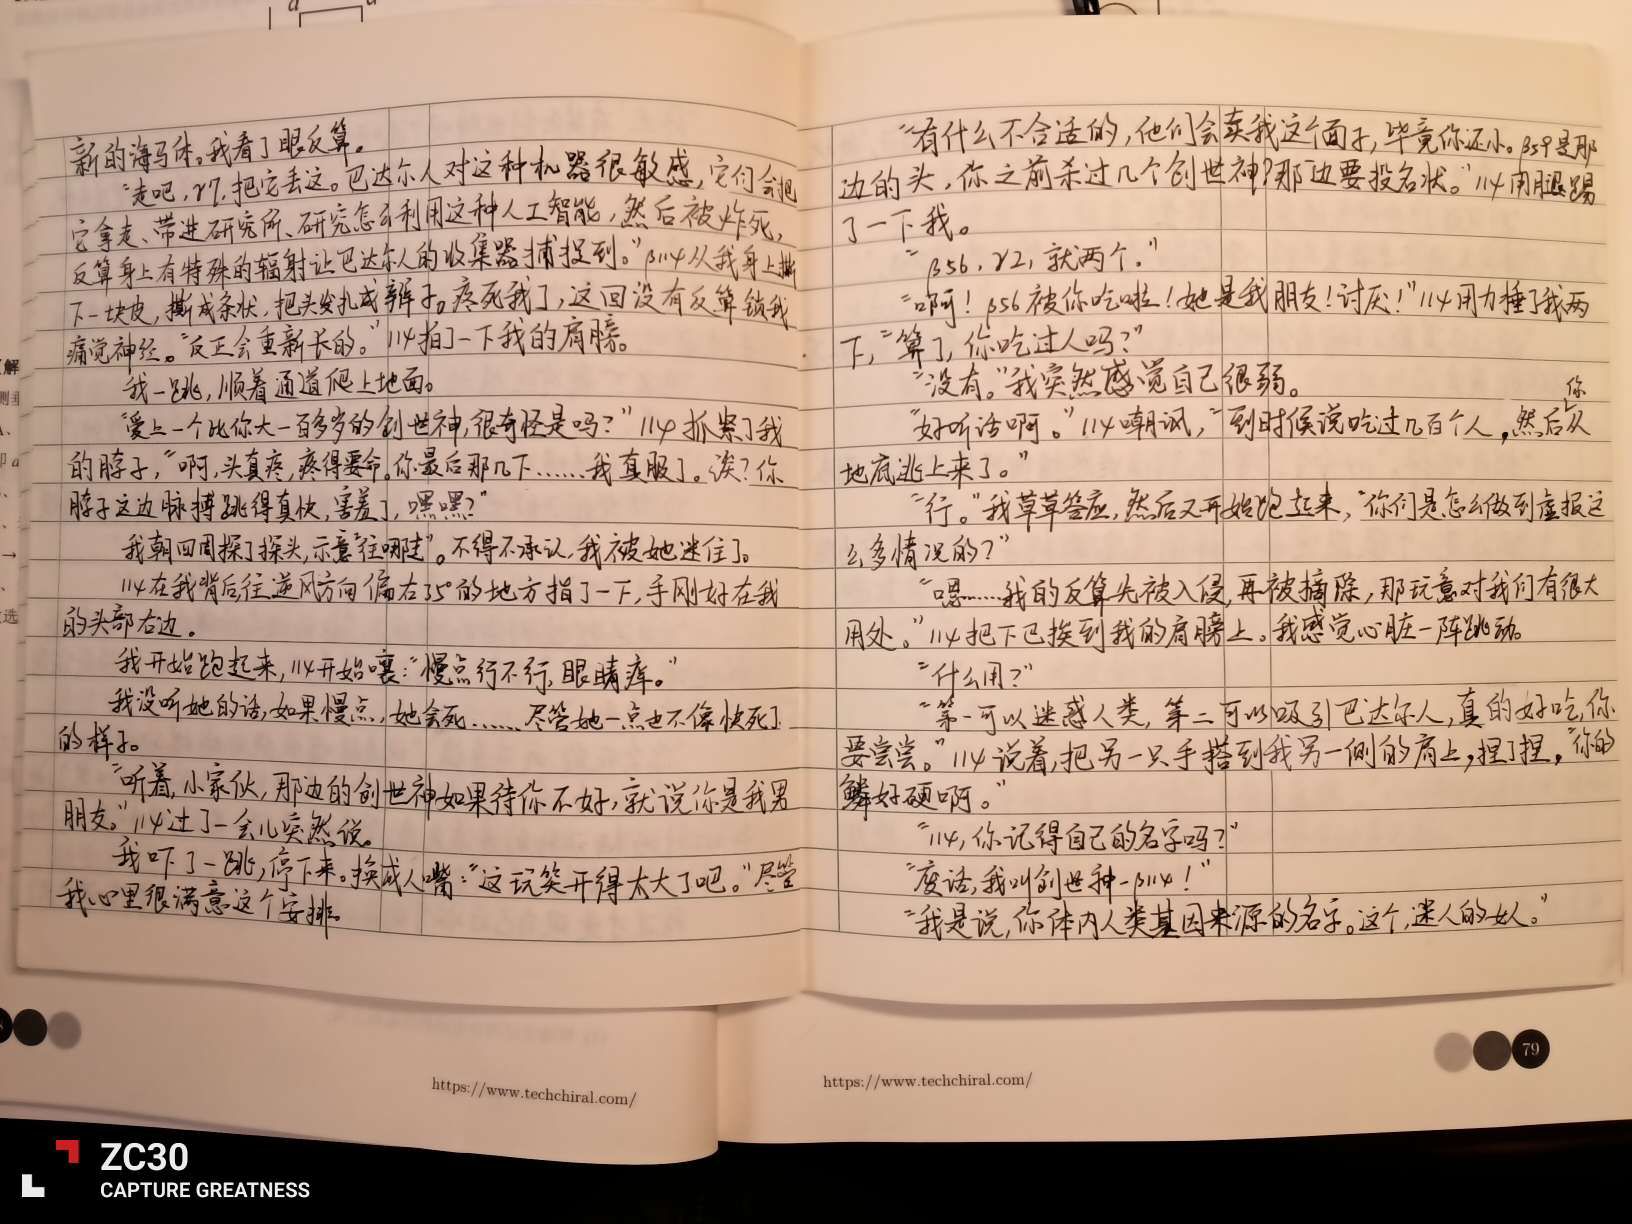 新的海马体。我看了眼反算。
"走吧,γ7,把它丢这。巴达尔人对这种机器很敏感,它们会把
它拿走、带进研究所、研究怎么利用这种人工智能,然后被炸死,
反算身上有特殊的辐射让巴达尔人的收集器捕捉到。"β114从我身上撕
下一块皮,撕成条状,把头发扎成辫子。疼死我了,这回没有反算锁我
痛觉神经。"反正会重新长的。"114拍了一下我的肩膀。
我一跳,顺着通道爬上地面。
"爱上一个比你大一百多岁的创世神,很奇怪是吗?"114抓紧了我
的脖子,"啊,头真疼,疼得要命。你最后那几下……我真服了。诶?你
脖子这边脉搏跳得真快,害羞了,嘿嘿?"
我朝四周探了探头,示意"往哪走"。不得不承认,我被她迷住了。
114在我背后往逆风方向偏右35°的地方指了一下,手刚好在我
的头部右边。
我开始跑起来,114开始嚷:"慢点行不行,眼睛痒。"
我没听她的话,如果慢点,她会死……尽管她一点也不像快死了
的样子。
"听着,小家伙,那边的创世神如果待你不好,就说你是我男
朋友。"114过了一会儿突然说。
我吓了一跳,停下来。换成人嘴:"这玩笑开得太大了吧。"尽管
我心里很满意这个安排。
"有什么不合适的,他们会卖我这个面子,毕竟你还小。β59是那
边的头,你之前杀过几个创世神?那边要投名状。"114用腿踢
了一下我。
"β56,γ2,就两个。"
"啊!β56被你吃啦!她是我朋友!讨厌!"114用力捶了我两
下,"算了,你吃过人吗?"
"没有。"我突然感觉自己很弱。
"好听话啊。"114嘲讽,"到时候说吃过几百个人,然后你从
地底逃上来了。"
"行。"我草草答应,然后又开始跑起来,"你们是怎么做到虚报这
么多情况的?"
"嗯……我的反算先被入侵,再被摘除,那玩意对我们有很大
用处。"114把下巴挨到我的肩膀上。我感觉心脏一阵跳动。
"什么用?"
"第一可以迷惑人类,第二可以吸引巴达尔人,真的好吃,你
要尝尝。"114说着,把另一只手搭到我另一侧的肩上,捏了捏,"你的
鳞好硬啊。"
"114,你记得自己的名字吗?"
"废话,我叫创世神-β114!"
"我是说,你体内人类基因来源的名字。这个,迷人的女人。"
https://www.techchiral.com/
https://www.techchiral.com/
79
ZC30
CAPTURE GREATNESS